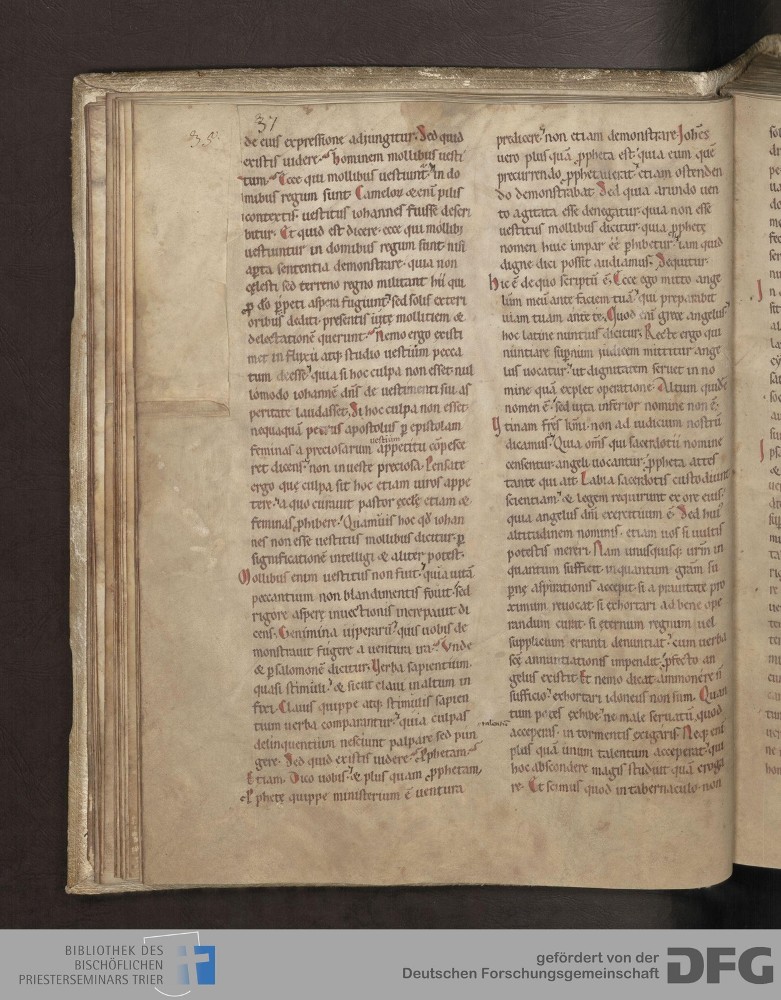 35
37
de eius expressione adiungitur. Sed quid
existis uidere. hominem mollibus uesti
tum. Ecce qui mollibus uestiunt̉ in do
mibus regum sunt. Camelorꝝ eni̅ pilis
contextis uestitus iohannes fuisse descri
bitur. Et quid est dicere. ecce qui mollibꝰ
uestiuntur in domibus regum sunt. nisi
aperta sententia demonstrare. quia non
cęlesti sed terreno regno militant hii qui
ꝓ do̅ ꝑpeti aspera fugiunt. sed solis exteri
oribus dediti. presentis uitę mollitiem &
delectatione̅ querunt. Nemo ergo existi
met in fluxu atq; studio uestium pecca
tum deesse. quia si hoc culpa non esset. nul
lomodo iohanne̅ dn̅s de uestimenti sui as
peritate laudasset. Si hoc culpa non esset
nequaquam petrus apostolus ꝑ epistolam
feminas a preciosarum uestium appetitu co̅pesce
ret dicens. non in ueste preciosa. Pensate
ergo quę culpa sit hoc etiam uiros appe
tere. a quo curauit pastor ęcclę etiam &
feminas ꝓhibere. Quamuis hoc qđ iohan
nes non esse uestitus mollibus dicitur. ꝑ
significatione̅ intelligi & aliter potest.
Mollibus enim uestitus non fuit. quia uita̅
peccantium non blandimentis fouit. sed
rigore asperę inuectionis increpauit di
cens. Genimina uiperaru̅. quis uobis de
monstrauit fugere a uentura ira. Vnde
& ꝑ salomone̅ dicitur. Verba sapientium
quasi stimuli. & sicut claui in altum in
fixi. Clauis quippe atq; stimulis sapien
tium uerba comparantur. quia culpas
delinquentium nesciunt palpare sed pun
gere. Sed quid existis uidere. Prophetam.
Etiam. Dico uobis. & plus quam ꝓphetam.
Prophetę quippe ministerium e̅ uentura
predicere. non etiam demonstrare. Ioħes
uero plus qua̅ ꝓpheta est. quia eum que̅
precurrendo ꝓphetauerat. etiam ostenden
do demonstrabat. Sed quia arundo uen
to agitata esse denegatur. quia non esse
uestitus mollibus dicitur. quia ꝓphetę
nomen huic impar ee̅ ꝑhibetur. iam quid
digne dici possit audiamus. Sequitur.
Hic e̅ de quo scriptu̅ e̅. Ecce ego mitto ange
lum meu̅ ante faciem tua̅. qui preparabit
uiam tuam ante te. Quod eni̅ grece angelus
hoc latine nuntius dicitur. Recte ergo qui
nuntiare supnum iudicem mittitur ange
lus uocatur. ut dignitatem seruet in no
mine qua̅ explet operatione. Altum quide̅
nomen e̅. sed uita inferior nomine non e̅.
Vtinam fr̅s km̅i. non ad iudicium nostru̅
dicamus. Quia om̅s qui sacerdotii nomine
censentur. angeli uocantur. ꝓpheta attes
tante qui ait. Labia sacerdotis custodiunt
scientiam. & legem requirunt ex ore eius.
quia angelus dn̅i exercituum e̅. Sed huiꝰ
altitudinem nominis. etiam uos si uultis
potestis mereri. Nam unusquisq; ur̅m in
quantum sufficit. in quantum gra̅m su
pnę aspirationis accepit. si a prauitate pro
ximum reuocat. si exhortari ad bene ope
randum curat. si ęternum regnum uel
supplicium erranti denuntiat. cum uerba
sc̅ę annuntiationis impendit. ꝓfecto an
gelus existit. Et nemo dicat. ammonere n̅
sufficio. exhortari idoneus non sum. Quan
tum potes exhibe. ne male seruatu̅ quod
acceperis. in tormentis exigaris. Neq; eni̅
plus qua̅ unum talentum acceperat. qui
hoc abscondere magis studuit qua̅ eroga
re. Et scimus quod in tabernaculo. non
BIBLIOTHEK DES
BISCHÖFLICHEN
PRIESTERSEMINARS TRIER
gefördert von der
Deutschen Forschungsgemeinschaft
DFG